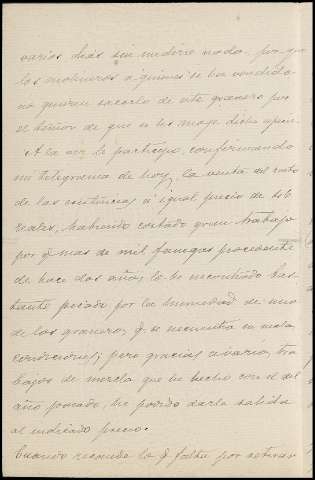 varios dias sin medirse nada, porque
los molineros a quienes se ha vendido
no quieren sacarlo de este granero por
el temor de que se les moje dicha
A la vez le participo, confirmando
mi telegrama de hoy, la venta del resto
de las existencias á igual precio de
reales, habiendo costado gran trabajo
por q. mas de mil fanegas procedente
de hace dos años, lo he encontrado bas-
tante picado por la humedad de uno
de los graneros, q. se encuentra en malas
condiciones; pero gracias a varios tra
bajos de mezcla que he hecho con el del
año pasado, he podido darle salida
al indicado precio.
Cuando recoucde lo q. falta por retirar